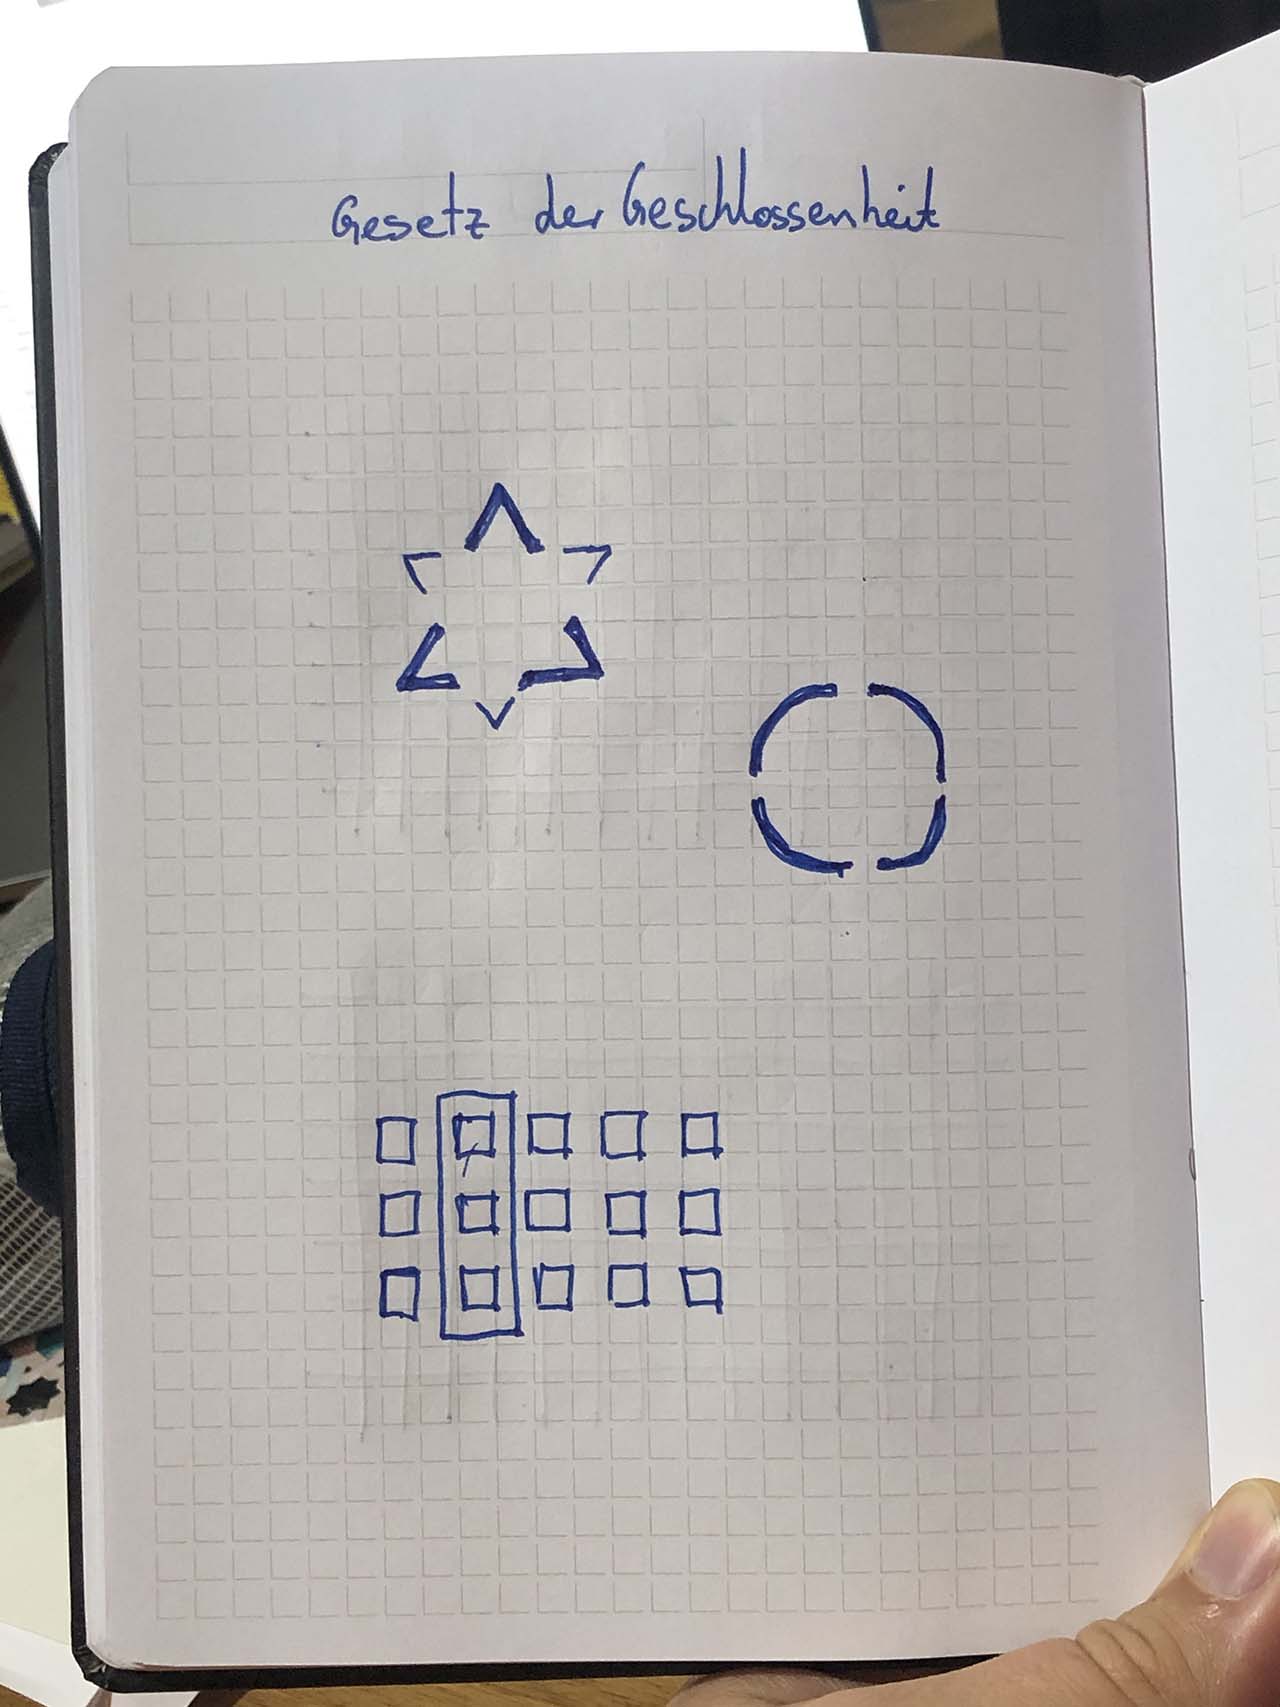 Gesetz der Geschlossenheit